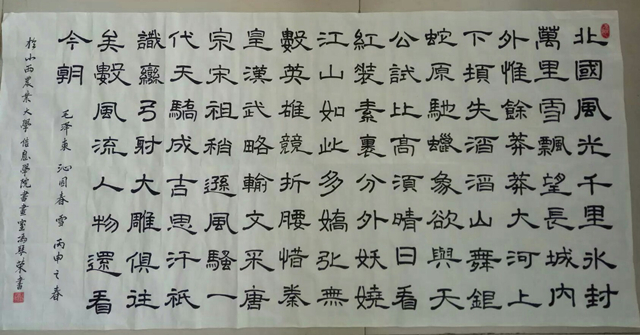 北國風光千里冰封
萬里雪飄望長城內
外惟餘莽莽大河上
下頓失滔滔山舞銀
蛇原馳蠟象欲與天
公試比高須晴日看
紅裝素裹分外妖嬈
江山如此多嬌引無
數英雄競折腰惜秦
皇漢武略輸文采唐
宗宋祖稍遜風騷一
代天驕成吉思汗祇
識彎弓射大雕俱往
矣數風流人物還看
今朝
毛澤東 沁園春 雪 丙申之春
於山西農業大學信息學院書畫室馮 榮書